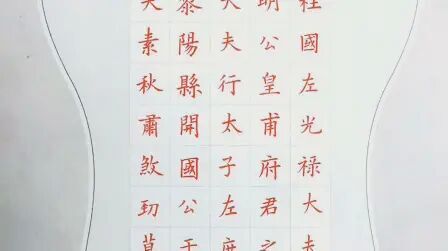 柱國左光祿大夫
明公皇甫府君之
大夫行太子左庶
黎陽縣開國公于
夫素秋肅煞勁草